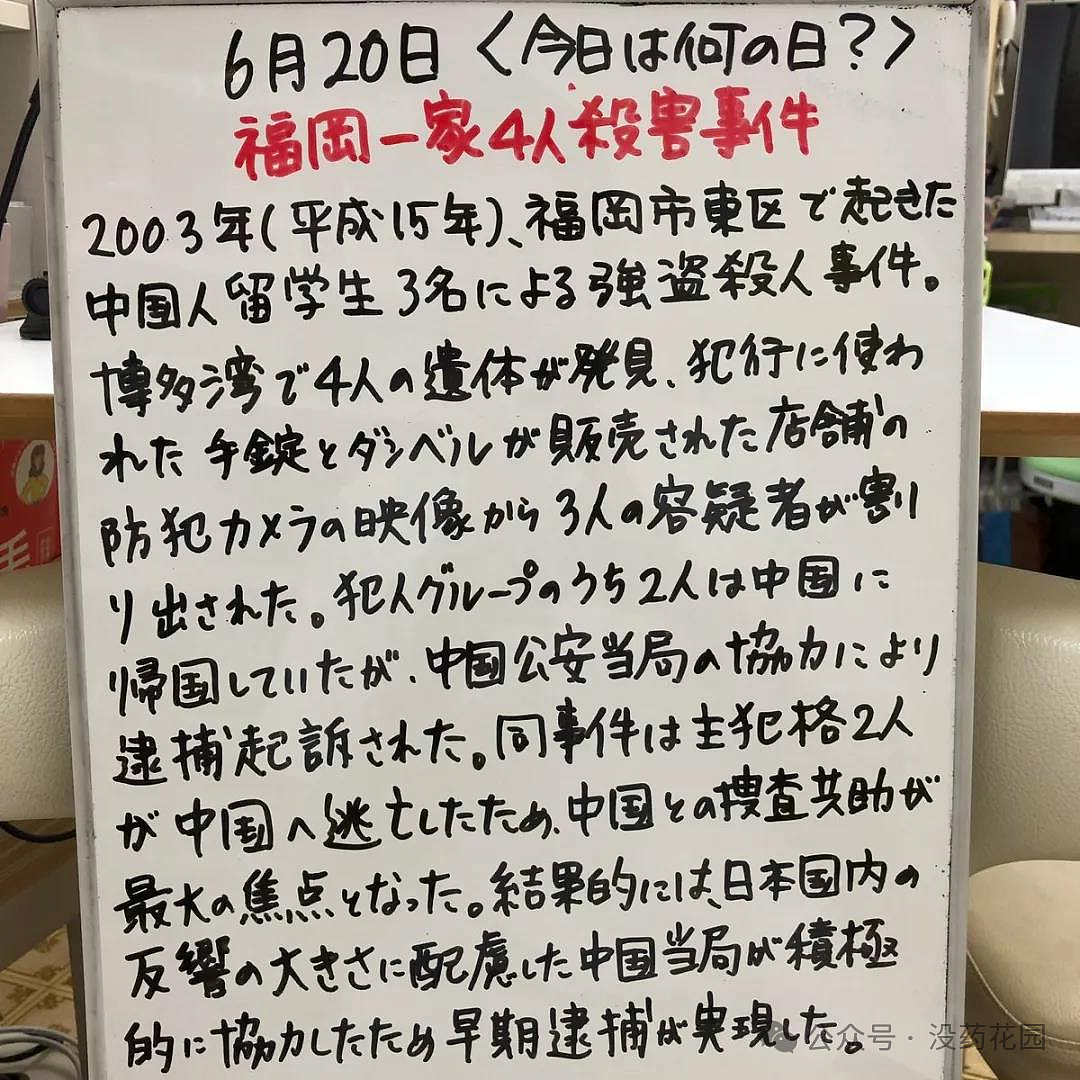 6月20日〈今日は何の日？〉
福岡一家4人殺害事件
2003年(平成15年)、福岡市東区で起きた
中国人留学生3名による強盗殺人事件。
博多湾で4人の遺体が発見、犯行に使わ
れた手錠とダンベルが販売された店舗の
防犯カメラの映像から3人の容疑者が割り
り出された。犯人グループのうち2人は中国に
帰国していたが、中国公安当局の協力により
逮捕起訴された。同事件は主犯格2人
が中国へ逃亡したため、中国との捜査共助が
最大の焦点となった。結果的には、日本国内の
反響の大きさに配慮した中国当局が積極
的に協力したため早期逮捕が実現した。
公众号·没药花园